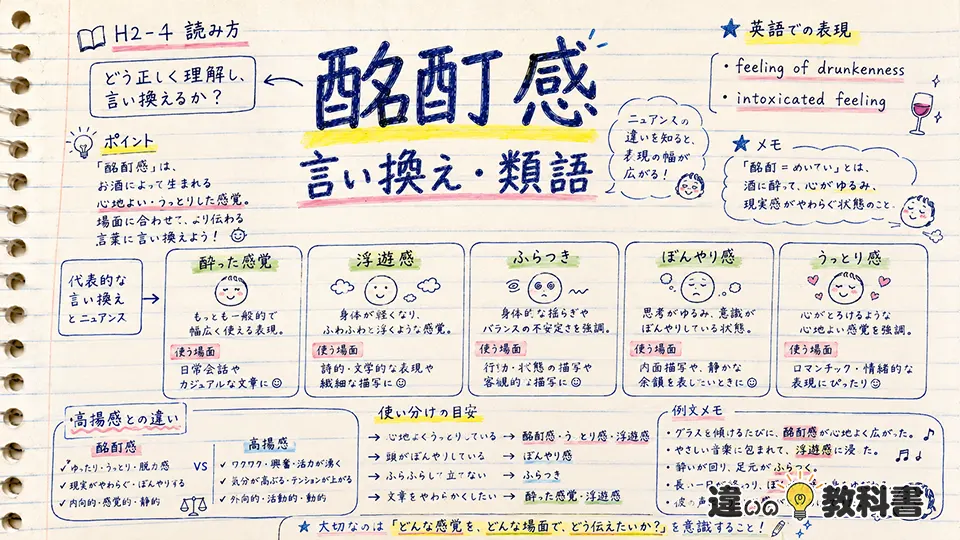 H2-4 読み方
どう正しく理解し、
言い換えるか？
酩酊感
言い換え・類語
★ 英語での表現
・feeling of drunkenness
・intoxicated feeling
ポイント
「酩酊感」は、
お酒によって生まれる
心地よい・うっとりした感覚。
場面に合わせて、より伝わる
言葉に言い換えよう！
ニュアンスの
違いを知ると、
表現の幅が
広がる！
★ メモ
「酩酊＝めいてい」とは、
酒に酔って、心がゆるみ、
現実感がやわらぐ状態のこと。
代表的な
言い換え
とニュアンス
酔った感覚
もっとも一般的で
幅広く使える表現。
使う場面
日常会話や
カジュアルな文章に
浮遊感
身体が軽くなり、
ふわふわと浮くような感覚。
使う場面
詩的・文学的な表現や
繊細な描写に
ふらつき
身体的な揺らぎや
バランスの不安定さを強調。
使う場面
行動・状態の描写や
客観的な描写に
ぼんやり感
思考がゆるみ、意識が
ぼんやりしている状態。
使う場面
内面描写や、静かな
余韻を表したいときに
うっとり感
心がとろけるような
心地よい感覚を強調。
使う場面
ロマンチック・情緒的な
表現にぴったり
高揚感との違い
酩酊感
✓ ゆったり・うっとり・脱力感
✓ 現実がやわらぐ・ぼんやりする
✓ 内向的・感覚的・静的
VS
高揚感
✓ ワクワク・興奮・活力が湧く
✓ 気分が高ぶる・テンションが上がる
✓ 外向的・活動的・動的
使い分けの目安
→ 心地よくうっとりしている → 酩酊感・うっとり感・浮遊感
→ 頭がぼんやりしている → ぼんやり感
→ ふらふらして立てない → ふらつき
→ 文章をやわらかくしたい → 酔った感覚・浮遊感
例文メモ
・グラスを傾けるたびに、酩酊感が心地よく広がった。
・やさしい音楽に包まれて、浮遊感に浸った。
・酔いが回り、足元がふらつく。
・長い一日が終わり、ぼ
・彼の声
違いの教科書
★ 大切なのは「どんな感覚を、どんな場面で、どう伝えたいか？」を意識すること！